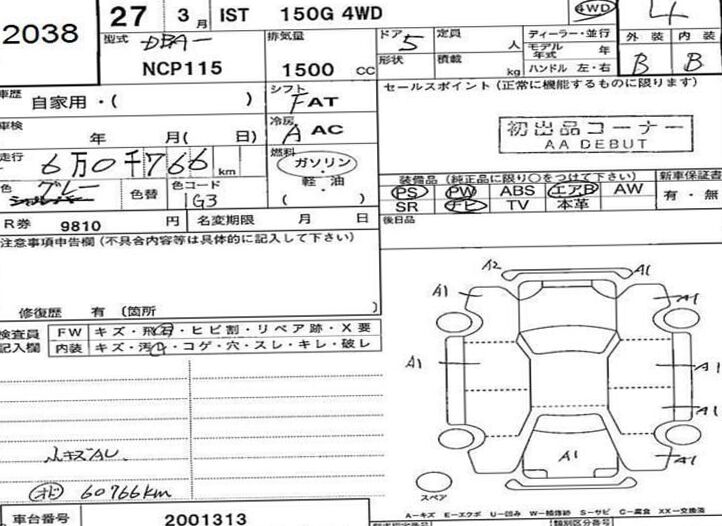 2038
27 3月 IST 150G 4WD
4WD
4
型式 DBA-
NCP115
排気量
1500 CC
ドア 5
定員 人
形状
積載 kg
ディーラー・並行
モデル年式 年
ハンドル 左・右
外装 内装
B B
車歴 自家用・( )
シフト
F AT
セールスポイント (正常に機能するものに限ります)
初出品コーナー
AA DEBUT
車検 年 月( 日)
冷房
A AC
走行 6万0千766 km
燃料
ガソリン
軽・油
( )
色 グレー
色替
色コード
1G3
装備品 (純正品に限り○をつけて下さい)
新車保証書
PS PW ABS エアB AW
有・無
SR ナビ TV 本革
R券 9810 円
名変期限 月 日
後日品
注意事項申告欄 (不具合内容等は具体的に記入して下さい)
修復歴 有 (箇所 )
検査員
記入欄
FW キズ・飛石・ヒビ割・リペア跡・X要
内装 キズ・汚れ・コゲ・穴・スレ・キレ・破レ
A2 A1
A1 A1
A1 A1
A1
A1 A1
スペア
小キズAU
オド 60766km
A-キズ E-エクボ U-凹み W-補修跡 S-サビ C-腐食 XX-交換済
車台番号 2001313
類別区分番号